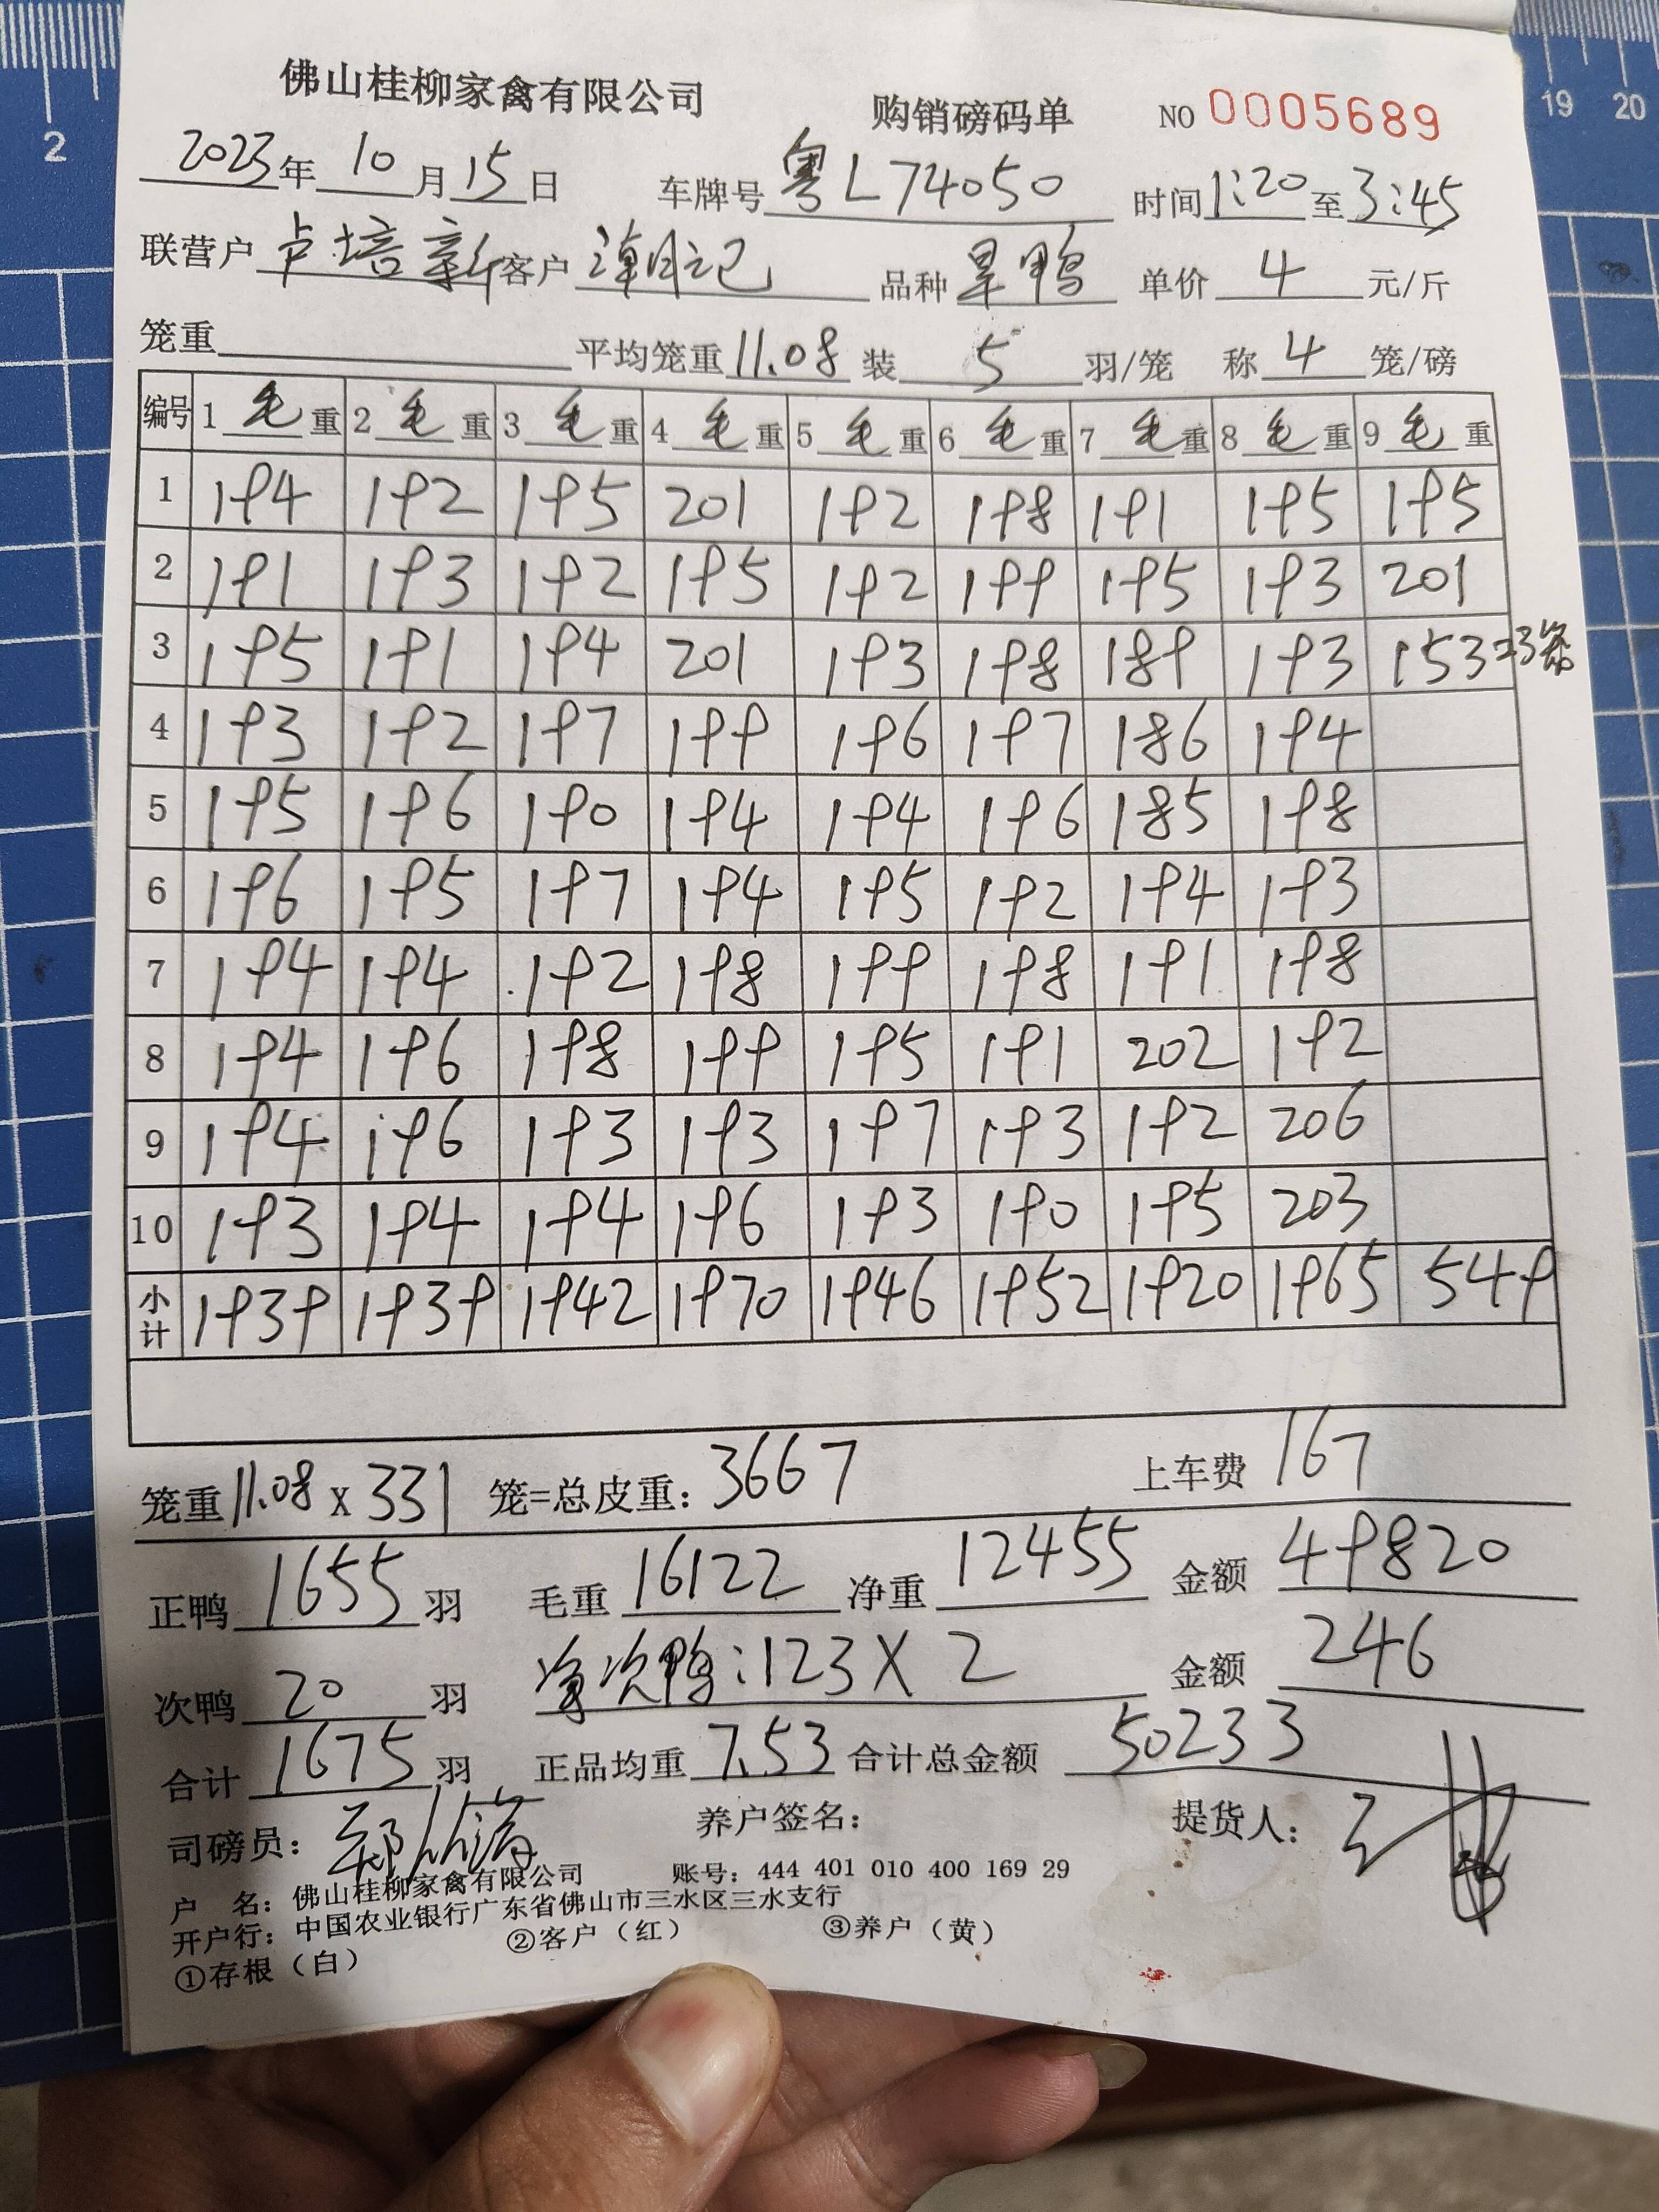 佛山桂柳家禽有限公司 购销磅码单 NO 0005689
2023年10月15日 车牌号 粤L74050 时间 1:20 至 3:45
联营户 卢培新 客户 潮记 品种 旱鸭 单价 4 元/斤
笼重 平均笼重 11.08 装 5 羽/笼 称 4 笼/磅
编号 1 毛重 2 毛重 3 毛重 4 毛重 5 毛重 6 毛重 7 毛重 8 毛重 9 毛重
1 194 192 195 201 192 198 191 195 195
2 191 193 192 195 192 199 195 193 201
3 195 191 194 201 193 198 189 193 153=3
4 193 192 197 199 196 197 186 194
5 195 196 190 194 194 196 185 198
6 196 195 197 194 195 192 194 193
7 194 194 192 198 199 198 191 198
8 194 196 198 199 195 191 202 192
9 194 196 193 193 197 193 192 206
10 193 194 194 196 193 190 195 203
小计 1939 1939 1942 1970 1946 1952 1920 1965 549
笼重 11.08 X 331 笼=总皮重: 3667 上车费 167
正鸭 1655 羽 毛重 16122 净重 12455 金额 49820
次鸭 20 羽 净次鸭:123X2 金额 246
合计 1675 羽 正品均重 7.53 合计总金额 50233
司磅员: 养户签名: 提货人:
户 名: 佛山桂柳家禽有限公司 账号: 444 401 010 400 169 29
开户行: 中国农业银行广东省佛山市三水区三水支行
①存根（白） ②客户（红） ③养户（黄）
2 19 20